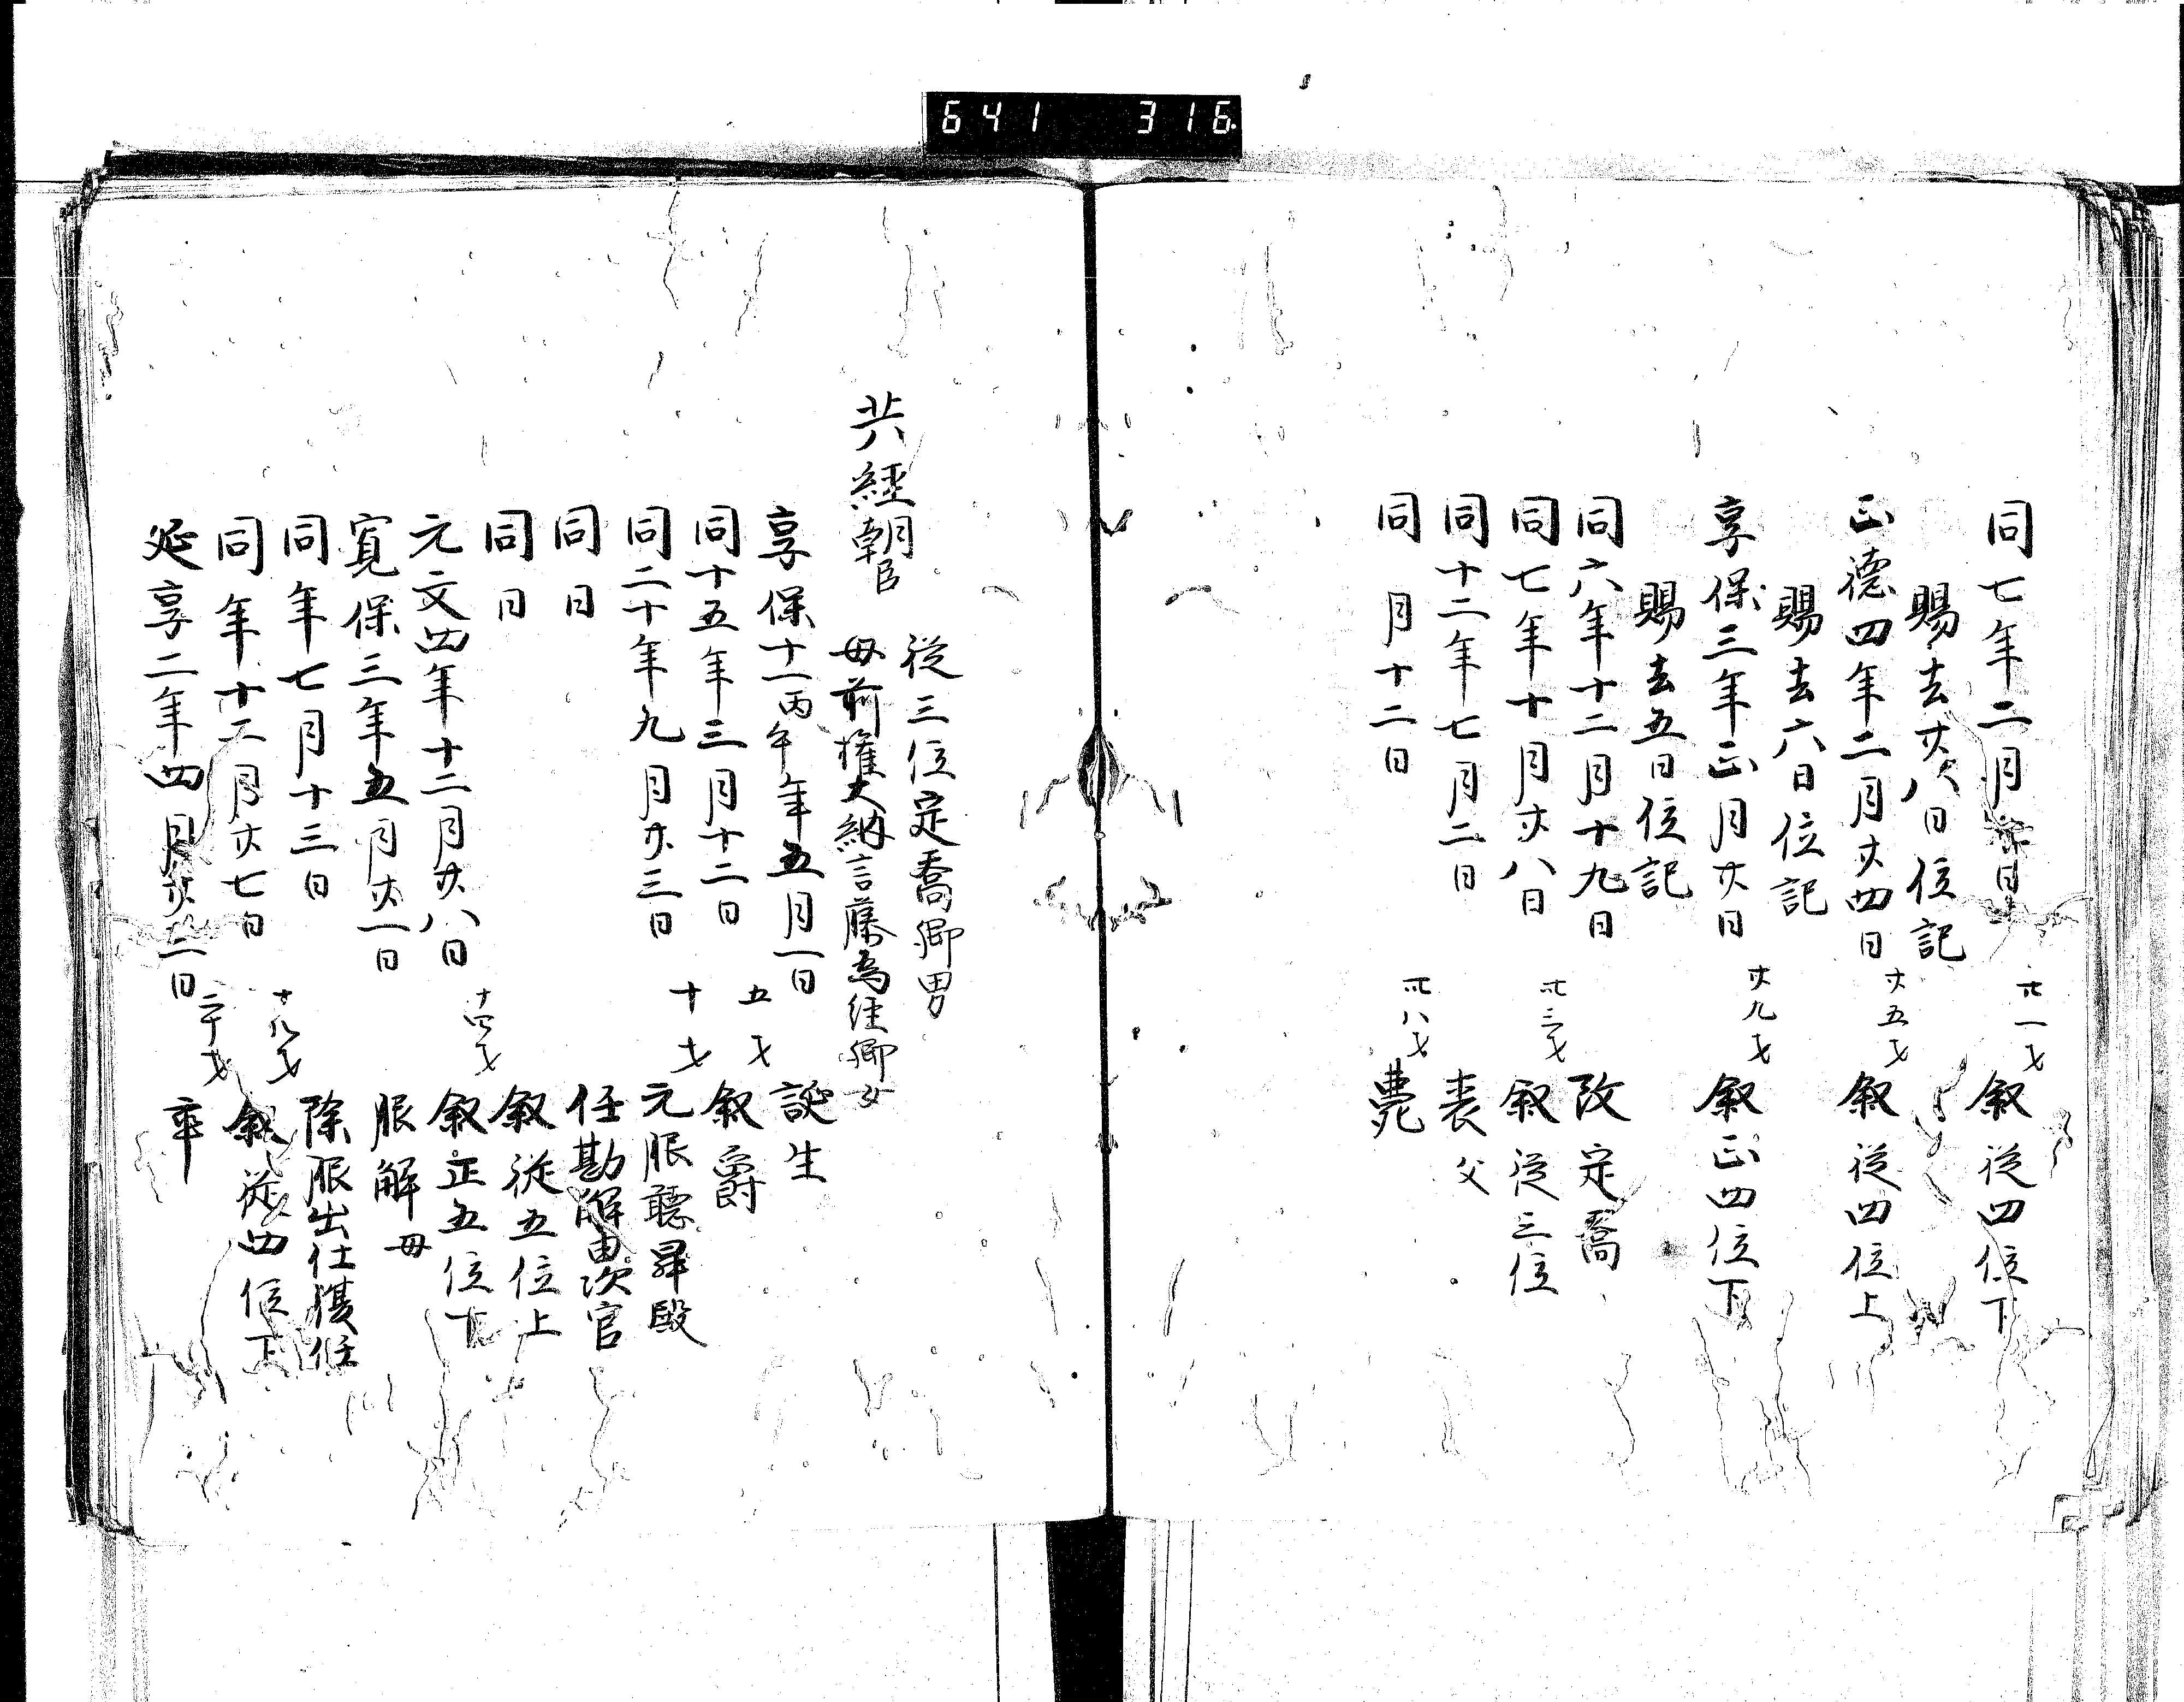 641 316
同七年二月 日 廿一才 叙従四位下
賜去廿八日位記
正徳四年二月廿四日 廿五才 叙従四位上
賜去六日位記
享保三年正月廿日 廿九才 叙正四位下
賜去五日位記
同六年十二月十九日 改定喬
同七年十月廿八日 卅三才 叙従三位
同十二年七月二日 喪父
同 月十二日 卅八才 薨
共經朝臣
従三位定喬卿男
母前權大納言藤為経卿女
享保十一丙午年五月一日 誕生
同十五年三月十二日 五才 叙爵
同二十年九月廿三日 十才 元服聴昇殿
同日 任勘解由次官
同日 叙従五位上
元文四年十二月廿八日 十四才 叙正五位下
寛保三年五月廿一日 服解母
同年七月十三日 除服出仕復任
同年十二月廿七日 十八才 叙従四位下
延享二年四月廿二日 二十才 卒